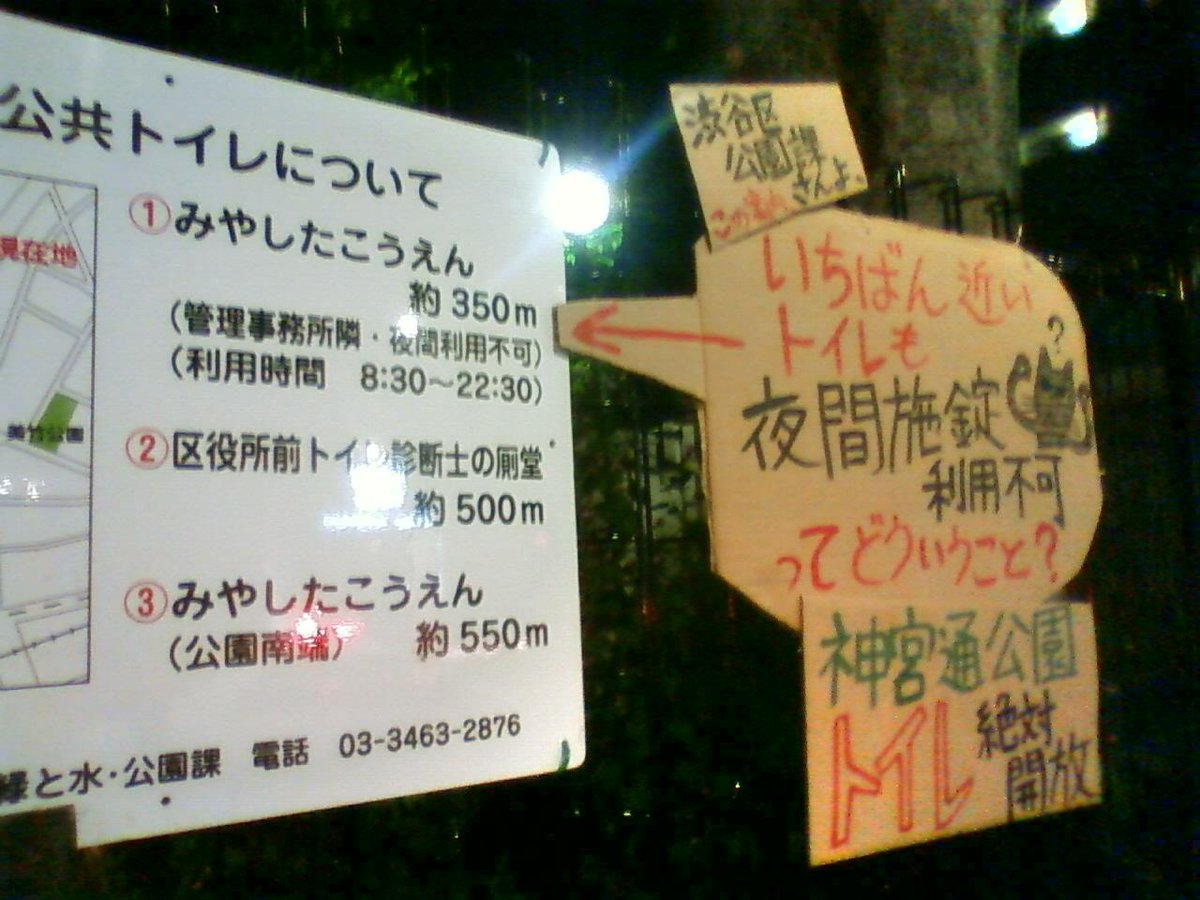 公共トイレについて
現在地
美竹公園
①みやしたこうえん
約350m
(管理事務所隣・夜間利用不可)
(利用時間 8:30～22:30)
②区役所前トイレ診断士の厠堂
約500m
③みやしたこうえん
(公園南端) 約550m
緑と水・公園課 電話 03-3463-2876
渋谷区
公園課
さんよ
この案内
いちばん近い
トイレも
?
夜間施錠
利用不可
ってどういうこと?
神宮通公園
トイレ
絶対
開放